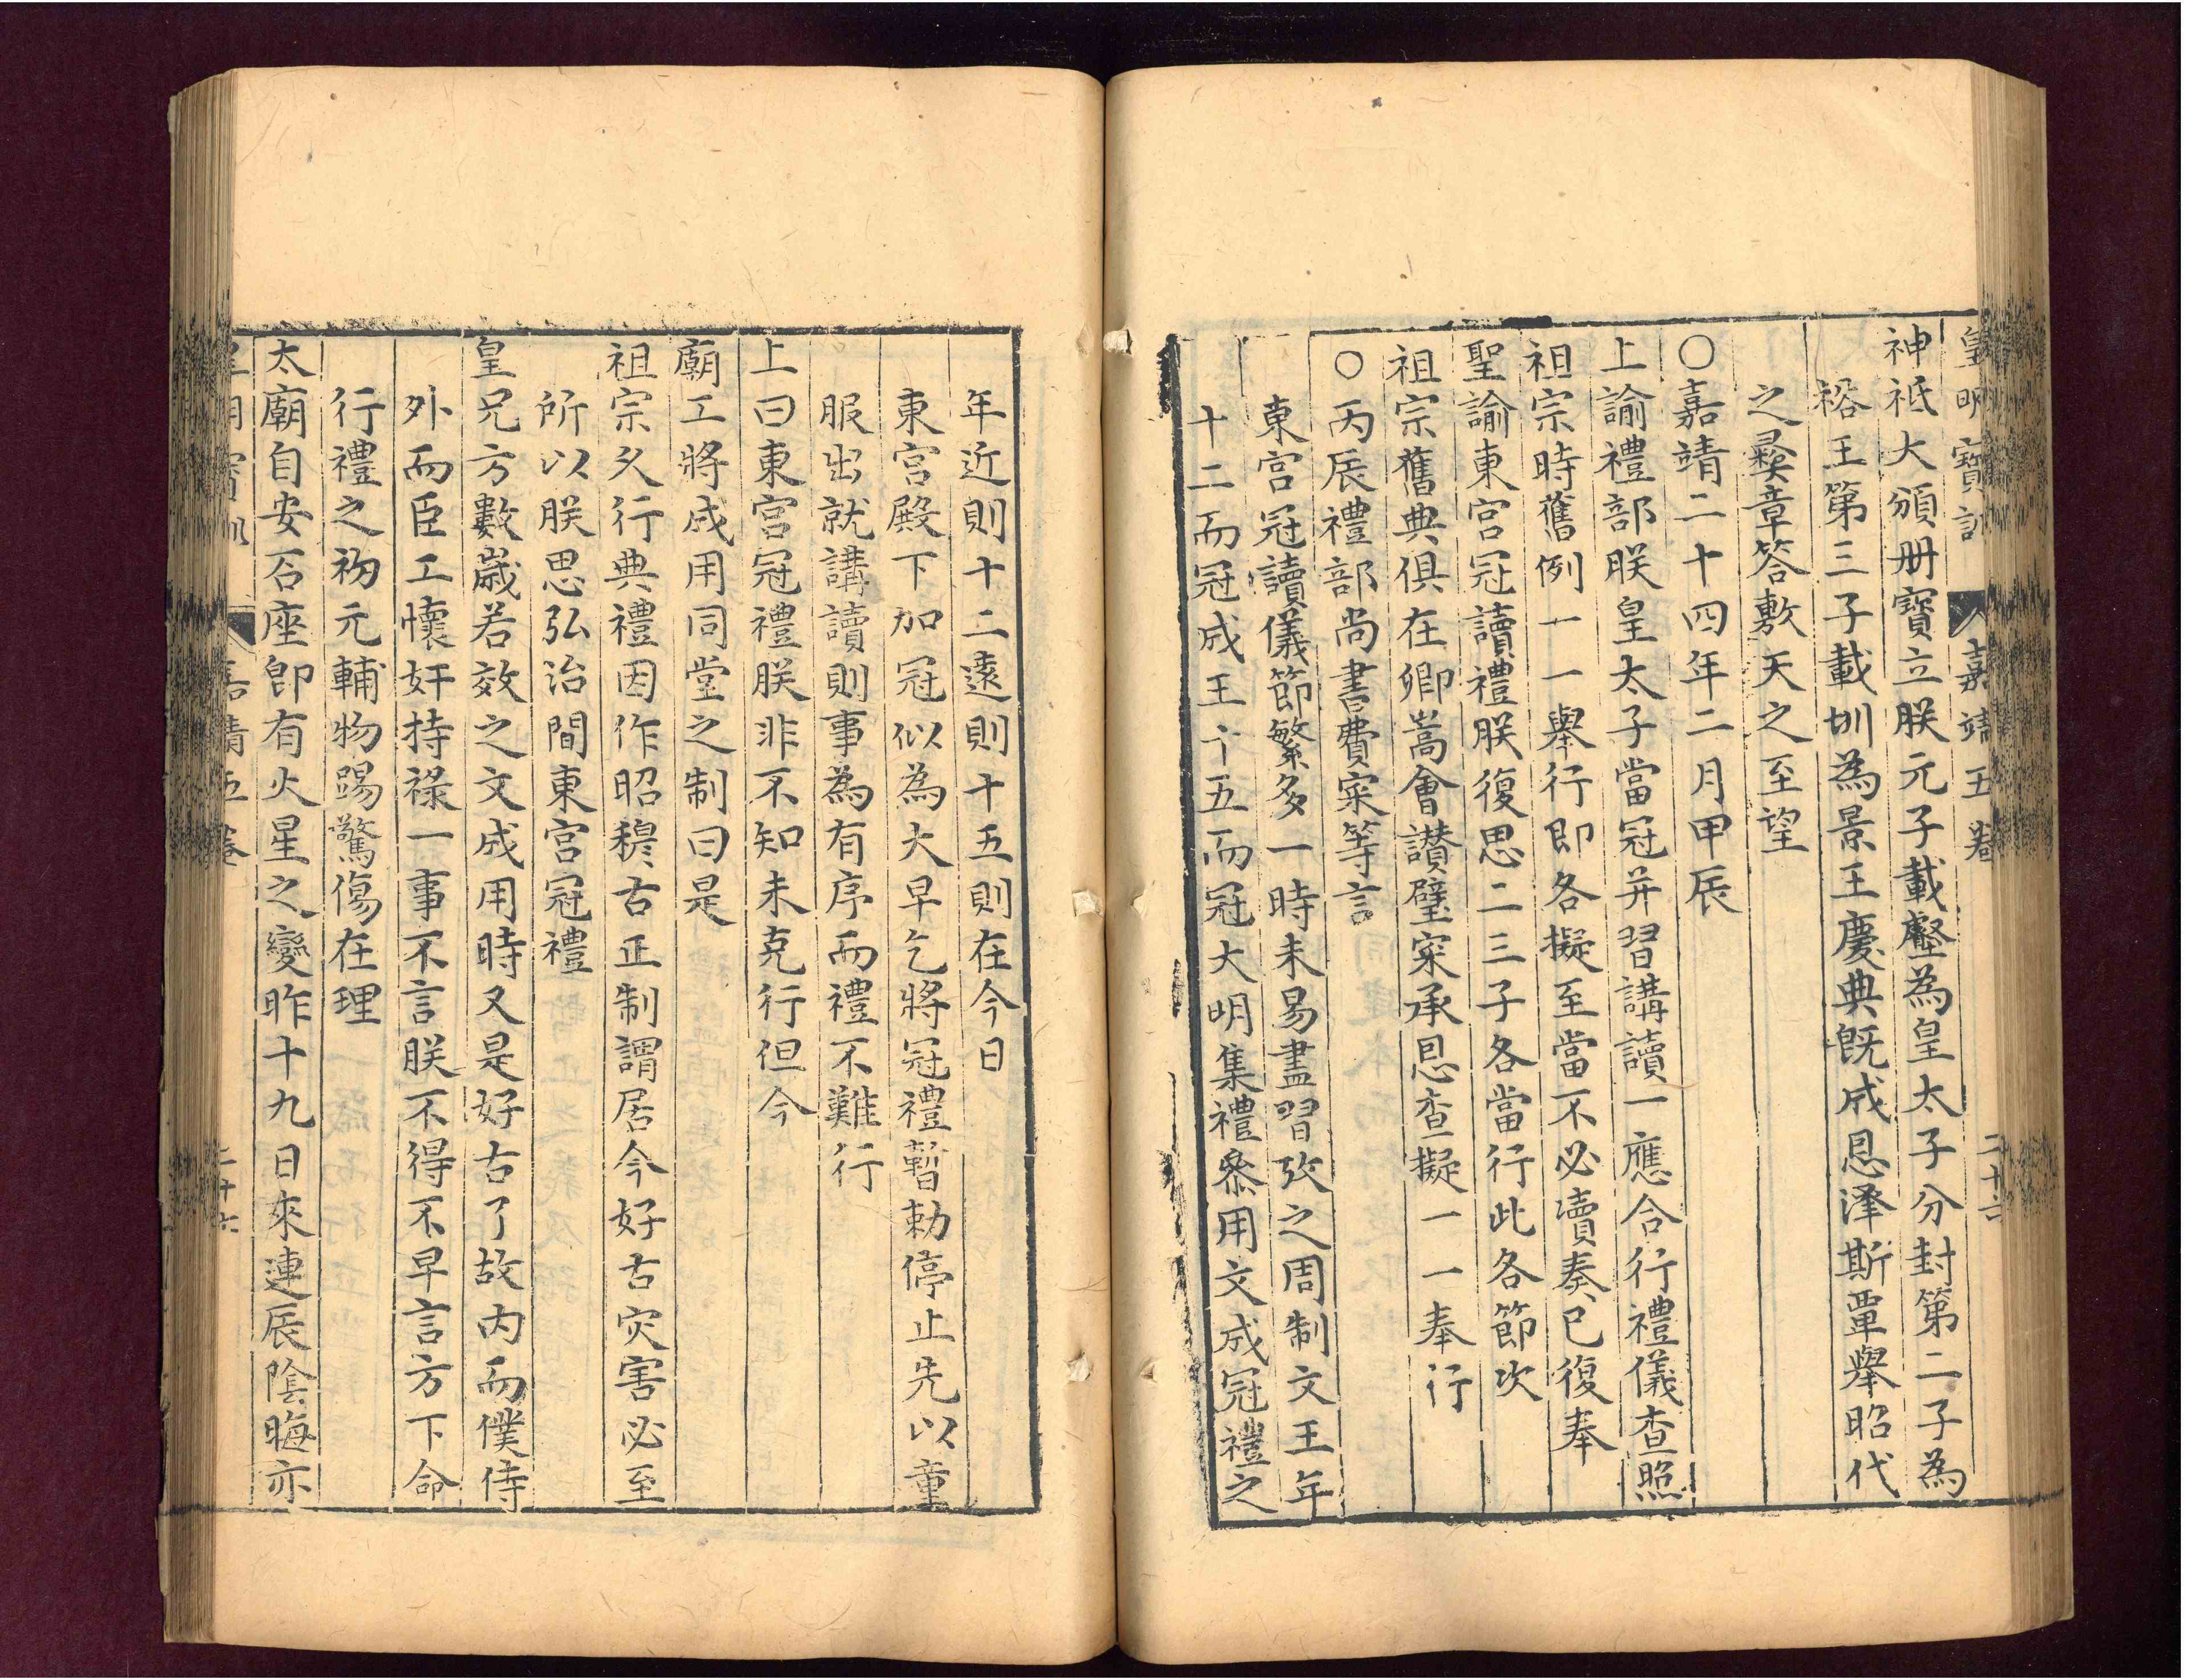 皇明寶訓 嘉靖五卷 二十六
神祇大頒册寶立朕元子載壑為皇太子分封第二子為
裕王第三子載圳為景王慶典既成恩澤斯覃舉昭代
之彝章答敷天之至望
○嘉靖二十四年二月甲辰
上諭禮部朕皇太子當冠并習講讀一應合行禮儀查照
祖宗時舊例一一舉行即各擬至當不必瀆奏已復奉
聖諭東宮冠讀禮朕復思二三子各當行此各節次
祖宗舊典俱在卿嵩會讚璧寀承恩查擬一一奉行
○丙辰禮部尚書費寀等言
東宮冠讀儀節繁多一時未易盡習攷之周制文王年
十二而冠成王十五而冠大明集禮叅用文成冠禮之
年近則十二遠則十五則在今日
東宮殿下加冠似為大早乞將冠禮暫勅停止先以童
服出就講讀則事為有序而禮不難行
上曰東宮冠禮朕非不知未克行但今
廟工將成用同堂之制曰是
祖宗久行典禮因作昭穆古正制謂居今好古灾害必至
所以朕思弘治間東宮冠禮
皇兄方數歲若效之文成用時又是好古了故内而僕侍
外而臣工懷奸持祿一事不言朕不得不早言方下命
行禮之初元輔物踢驚傷在理
太廟自安石座即有火星之變昨十九日來連辰陰晦亦
嘉靖五卷 二十六